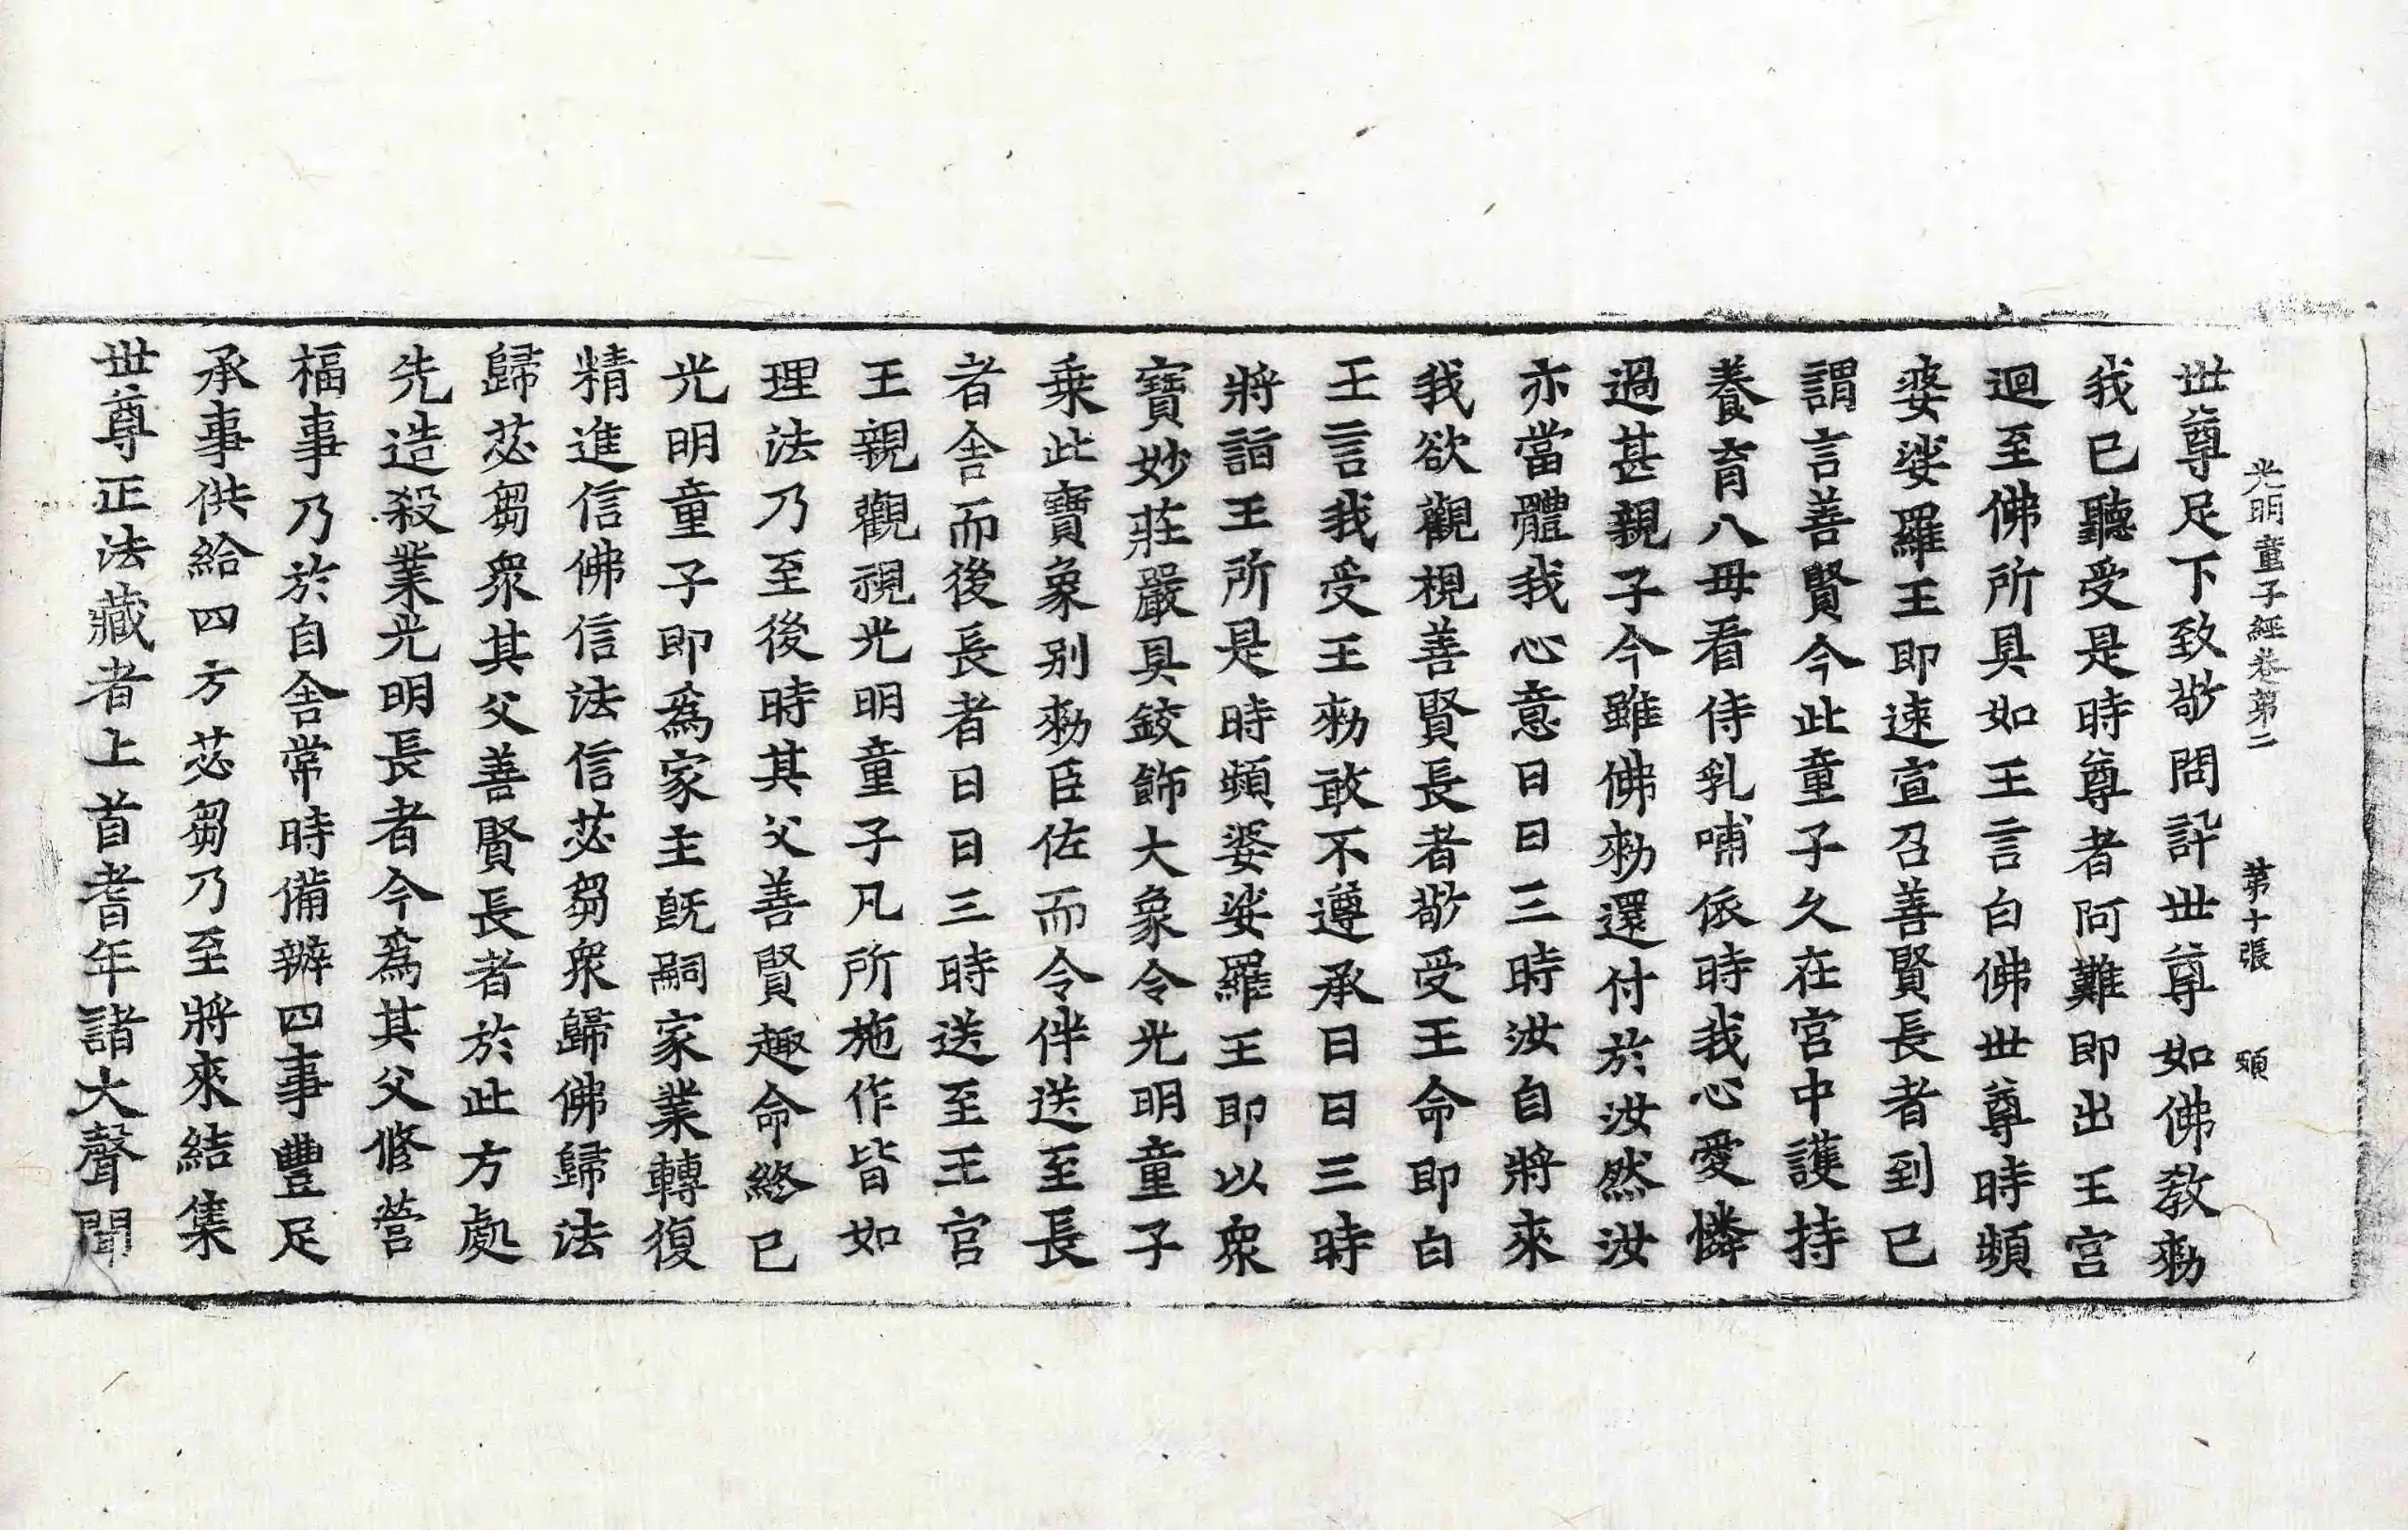 光明童子經卷第二　第十張　頻
世尊足下致敬問訊世尊如佛教勑
我已聽受是時尊者阿難即出王宮
迴至佛所具如王言白佛世尊時頻
婆娑羅王即速宣召善賢長者到已
謂言善賢今此童子久在宮中護持
養育八母看侍乳哺依時我心愛憐
過甚親子今雖佛勑還付於汝然汝
亦當體我心意日日三時汝自將來
我欲觀視善賢長者敬受王命即白
王言我受王勑敢不遵承日日三時
將詣王所是時頻婆娑羅王即以衆
寶妙莊嚴具鉸飾大象令光明童子
乗此寶象别勑臣佐而令伴送至長
者舍而後長者日日三時送至王宮
王親觀視光明童子凡所施作皆如
理法乃至後時其父善賢趣命終已
光明童子即爲家主旣嗣家業轉復
精進信佛信法信苾芻衆歸佛歸法
歸苾芻衆其父善賢長者於此方處
先造殺業光明長者今爲其父修營
福事乃於自舍常時備辦四事豐足
承事供給四方苾芻乃至將來結集
世尊正法藏者上首耆年諸大聲聞